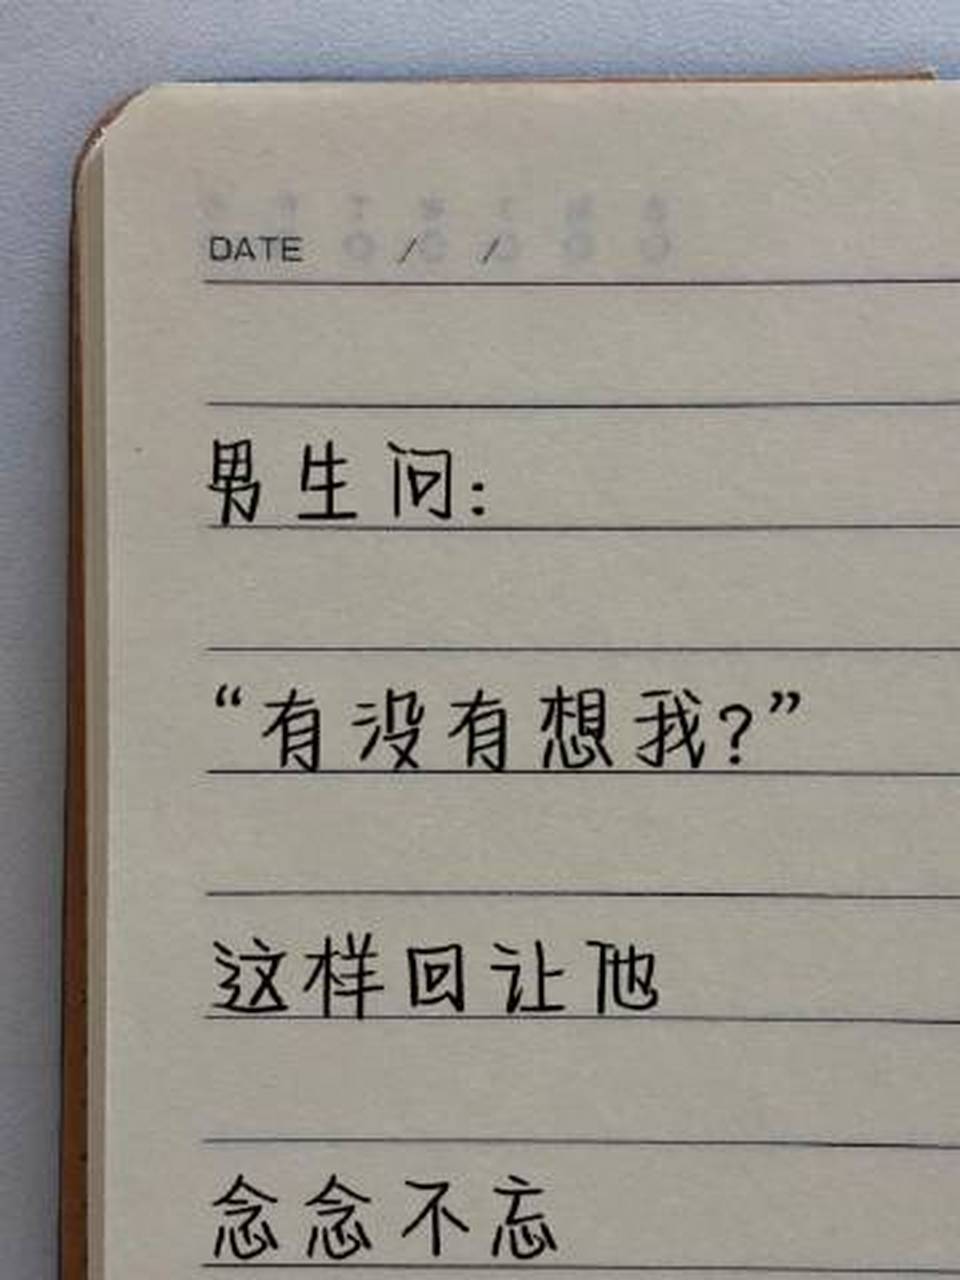 DATE / /
男生问:
“有没有想我?”
这样回让他
念念不忘